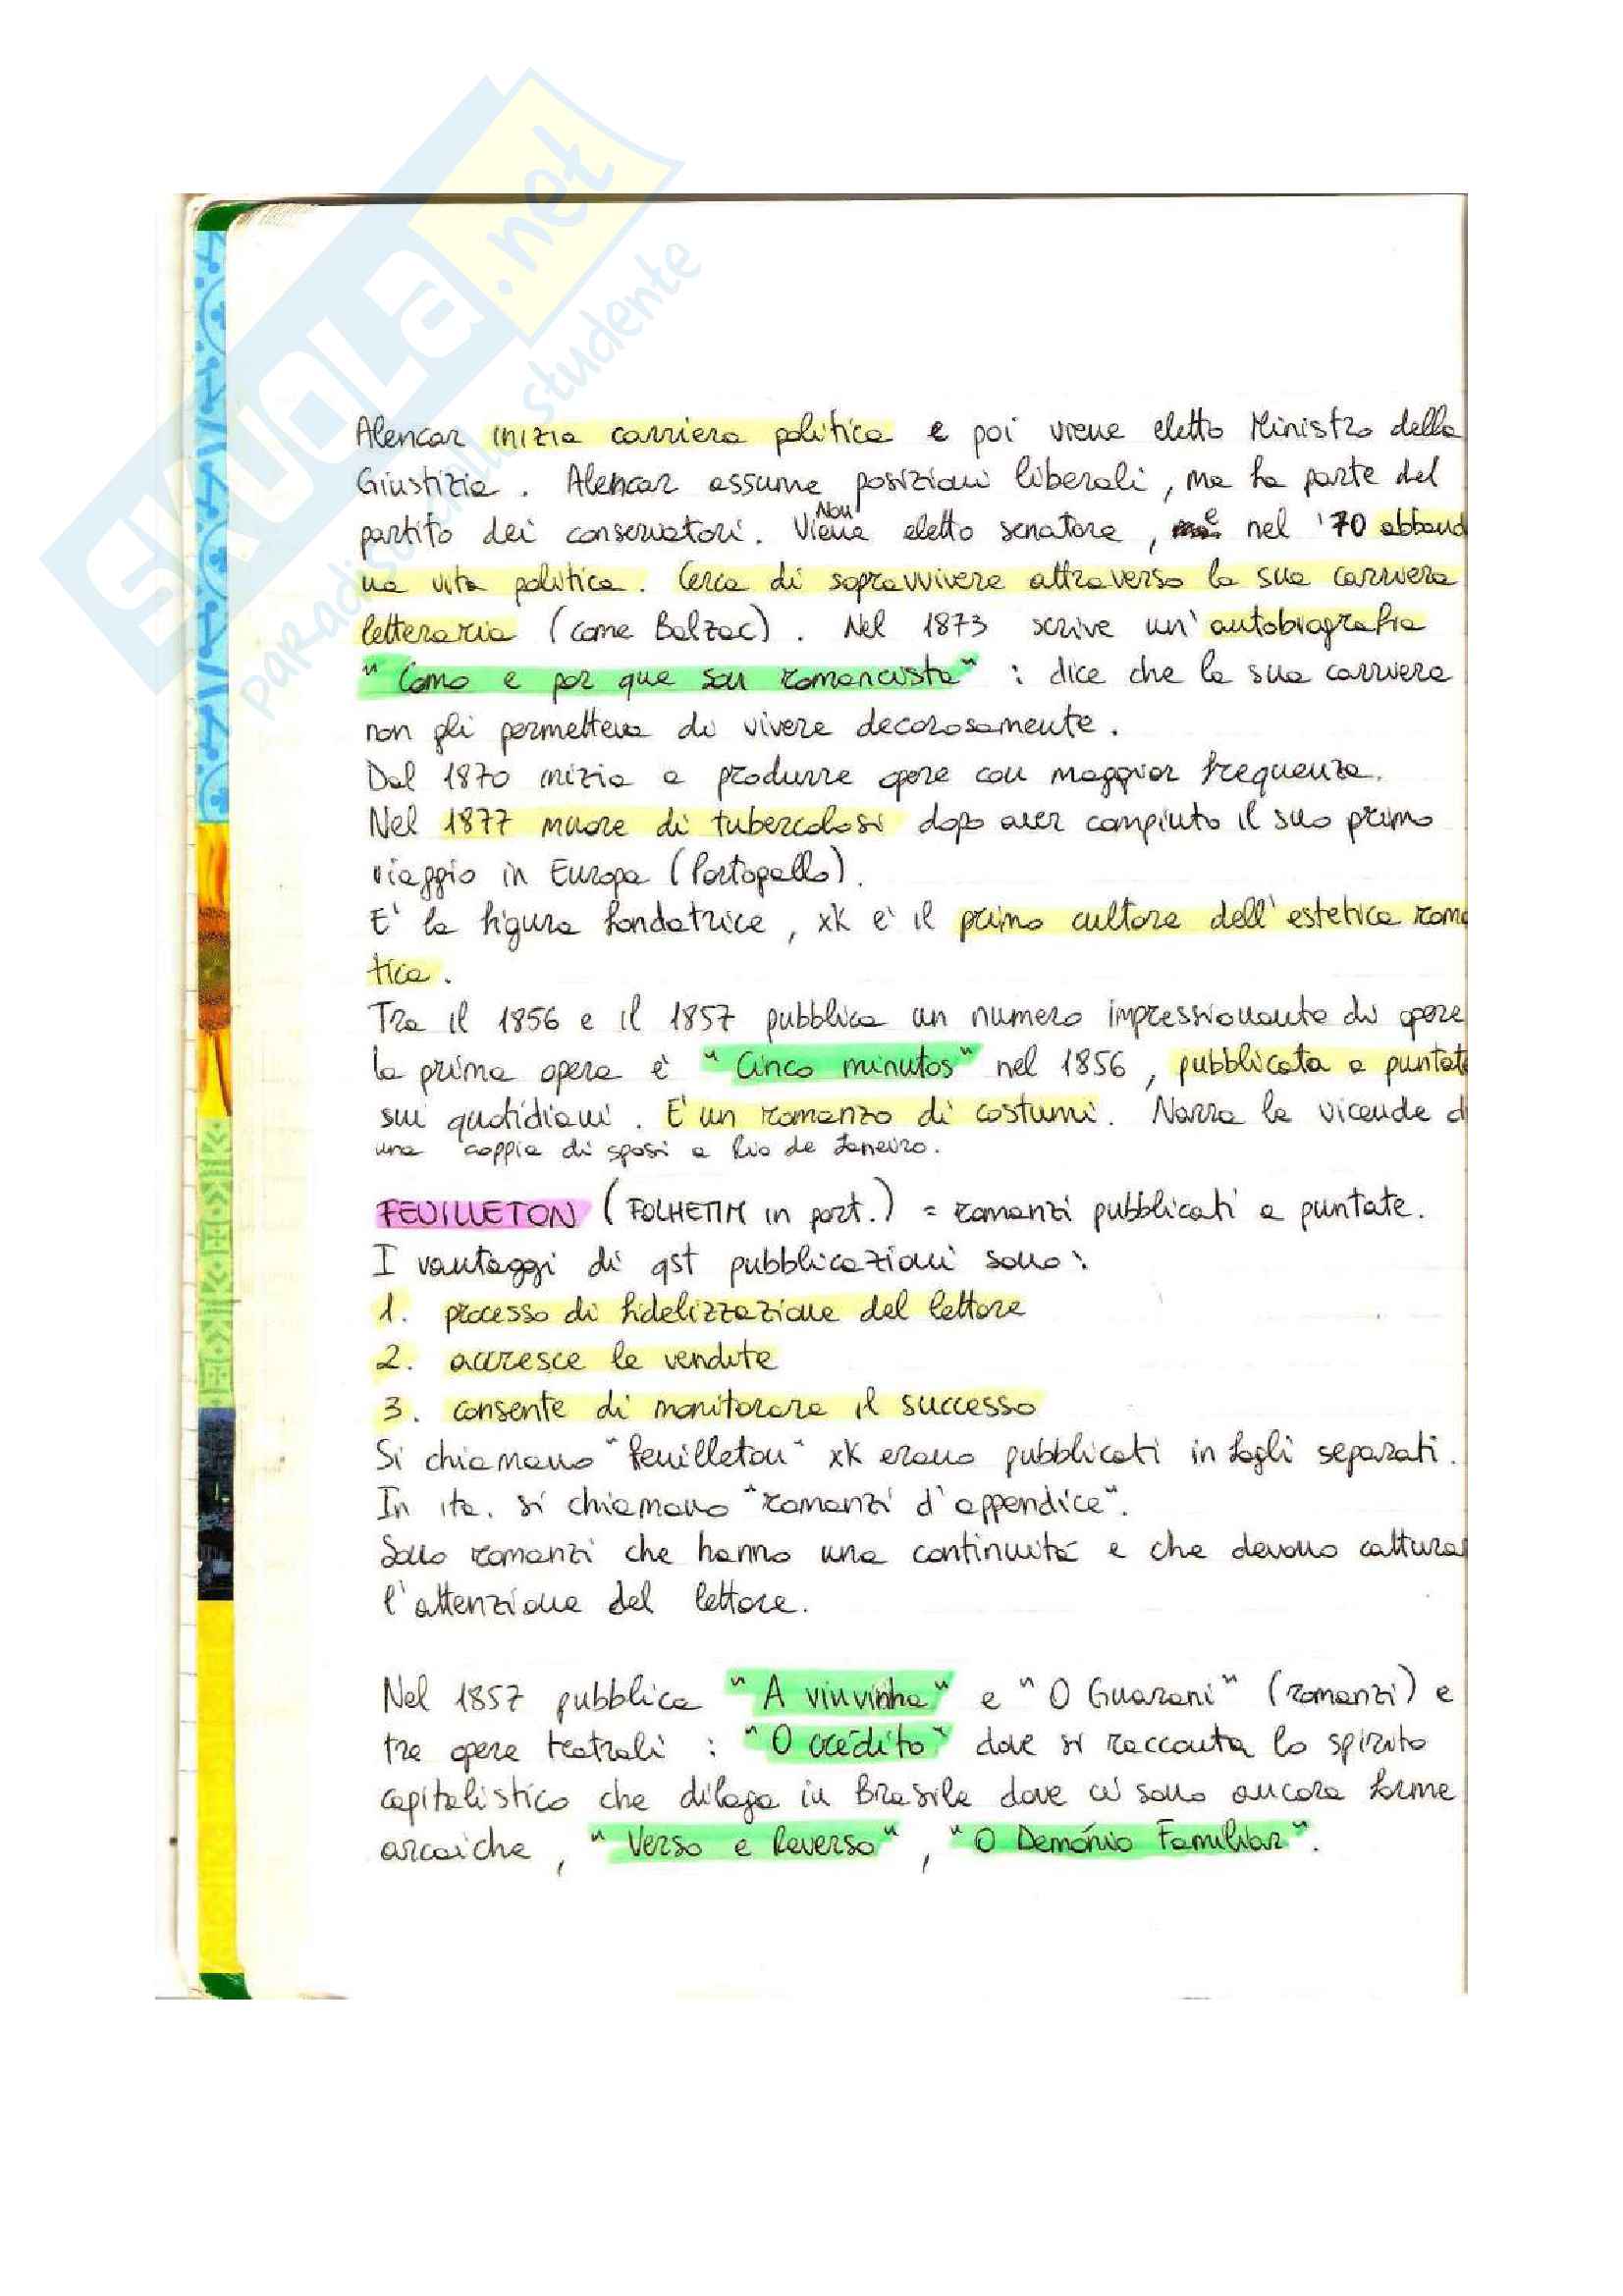 SKUOLa.net
paradiso dello studente
Alencar inizia carriera politica e poi viene eletto Ministro della
Giustizia. Alencar assume posizioni liberali, ma fa parte del
partito dei conservatori. Non Viene eletto senatore, e nel '70 abband
na vita politica. Cerca di sopravvivere attraverso la sua carriera
letteraria (come Balzac). Nel 1873 scrive un'autobiografia
"Como e por que sou romancista": dice che la sua carriera
non gli permetteva di vivere decorosamente.
Dal 1870 inizia a produrre opere con maggior frequenza.
Nel 1877 muore di tubercolosi dopo aver compiuto il suo primo
viaggio in Europa (Portogallo).
E' la figura fondatrice, xk è il primo cultore dell'estetica roma
tica.
Tra il 1856 e il 1857 pubblica un numero impressionante di opere
la prima opera è "Cinco minutos" nel 1856, pubblicata a puntate
sui quotidiani. E' un romanzo di costumi. Narra le vicende d
una coppia di sposi a Rio de Janeiro.
FEUILLETON (FOLHETIM in port.) = romanzi pubblicati a puntate.
I vantaggi di qst pubblicazioni sono:
1. processo di fidelizzazione del lettore
2. accresce le vendite
3. consente di monitorare il successo
Si chiamano "feuilleton" xk erano pubblicati in fogli separati.
In ita. si chiamano "romanzi d'appendice".
Sono romanzi che hanno una continuità e che devono cattura
l'attenzione del lettore.
Nel 1857 pubblica "A viuvinha" e "O Guarani" (romanzi) e
tre opere teatrali: "O crédito" dove si racconta lo spirito
capitalistico che dilaga in Brasile dove ci sono ancora forme
arcaiche, "Verso e Reverso", "O Demónio Familiar".